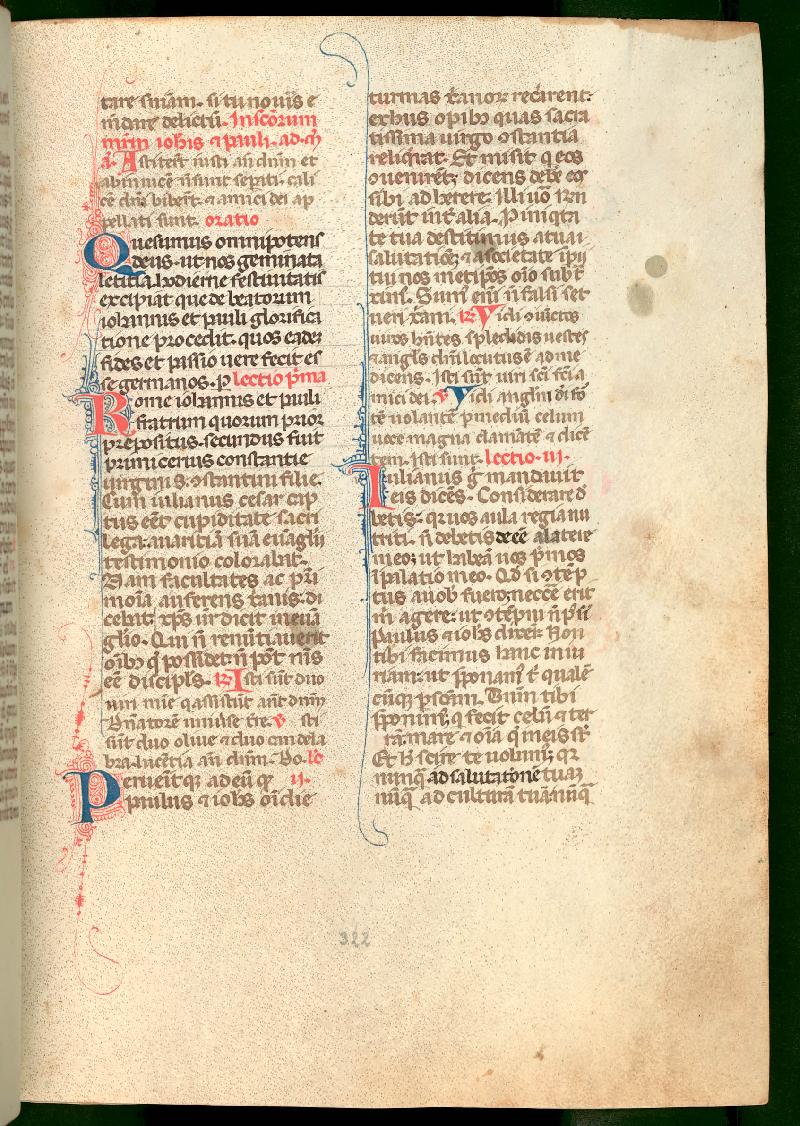 tare suiam. si tu nouis e
mdare delictu. In scorum
mrm iohis ⁊ pauli. ad
a. Astitert iusti an dnm et
ab inuice n sunt sepati. cali
ce dni bibert ⁊ amici dei ap
pellati sunt. oratio
Quesumus omnipotens
deus. ut nos geminata
letitia hodierne festiuitatis
excipiat que de beatorum
iohannis et pauli glorifica
tione procedit. quos eadem
fides et passio uere fecit es
se germanos. P lectio pma
Rome iohannis et pauli
fratrum quorum prior
prepositus. secundus fuit
primicerius constantie
uirginis ꝯstantini filie.
Cum iulianus cesar cap
tus eet cupiditate sacri
lega. auaritia sua euaglii
testimonio colorabat.
Nam facultates ac pri
moia auferens xanis. di
cebat. xps ur dicit in eua
glio. Qui n renutiauerit
oibs q possidet n pot ms
ee discipls. R Isti sut duo
uiri mie q assistut ant dnm
Dnatore uniuse tre. v Isti
sut duo oliue ⁊ duo candela
bra lucentia an dnm. Do. lc
Peruenit qz ad eu q ii.
paulus ⁊ iohs oi die
turmas xanor recrarent
ex hus opibs quas sacra
tissima uirgo ꝯstantia
reliqrat. Et misit q eos
ꝯuenirent dicens debe eos
sibi adherere. Illi uo ren
derut int alia. P iniqta
te tua destitimus a tua
salutatioe ⁊ a societate ipii
tui nos metipos oio subt
xim. Sum eni n falsi set
ueri xani. R Vidi ꝯiuctos
uiros hntes splendidas uestes
⁊ angls dni locutus e ad me
dicens. Isti sut uiri sci fci a
mici dei. v Vidi anglm di fo
te uolante p mediu celum
uoce magna clamate ⁊ dice
tem. Isti sunt. lectio. iii.
Iulianus g mandauit
eis dices. Considerare d
betis. qr uos aula regia nu
triti. si debetis deee a latere
meo; ut habea uos pmos
i palatio meo. Qd si ꝯtep
tus a uob fuero; necce erit
m agere. ut ꝯtepni n psi
Paulus ⁊ iohs dixer. Non
tibi facimus hanc iniu
riam. ut pponam t quale
cuqz psonam. Dnm tibi
pponim. q fecit celu ⁊ ter
ra. mare ⁊ oia q in eis st
Et h scire te uolum; qr
nunq ad salutatone tuaz
nuq ad cultura tua nuq
322